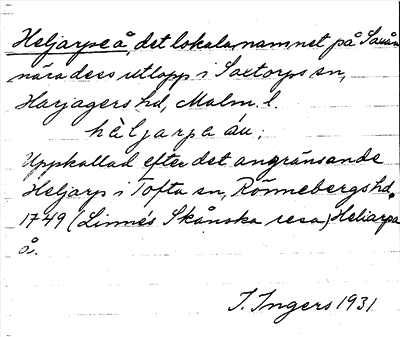 Heljarpe å, det lokala namnet på Saxån
nära dess utlopp i Saxtorps sn,
Harjagers hd, Malm. l.
hàljarpa áu;
Uppkallad efter det angränsande
Heljarp i Tofta sn, Rönnebergs hd.
1749 (Linnés Skånska resa) Heliarpa
å.
I. Ingers 1931